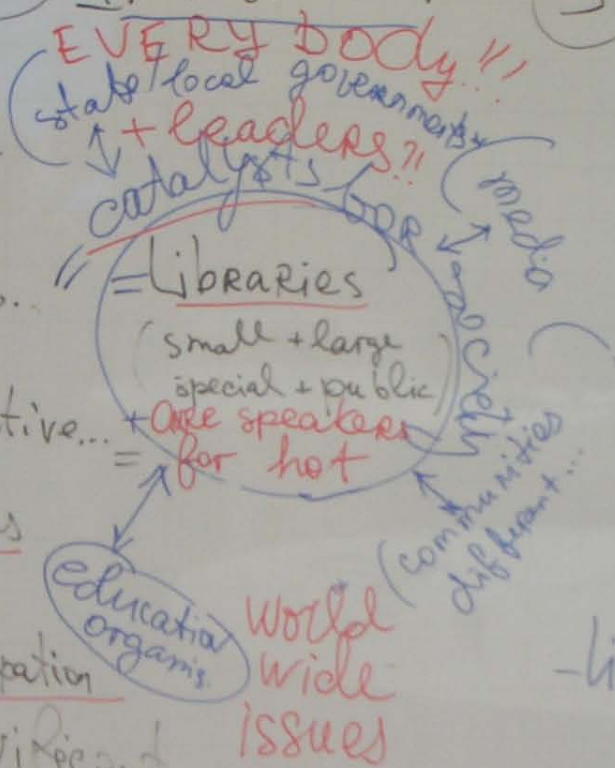 EVERY body!!
state/local governments
+ leaders?!
catalysts for society
(media
= Libraries
(small + large
special + public)
+ are speakers
for hot
=
(communities
different...
education
organis.
world
wide
issues
tive...
pation